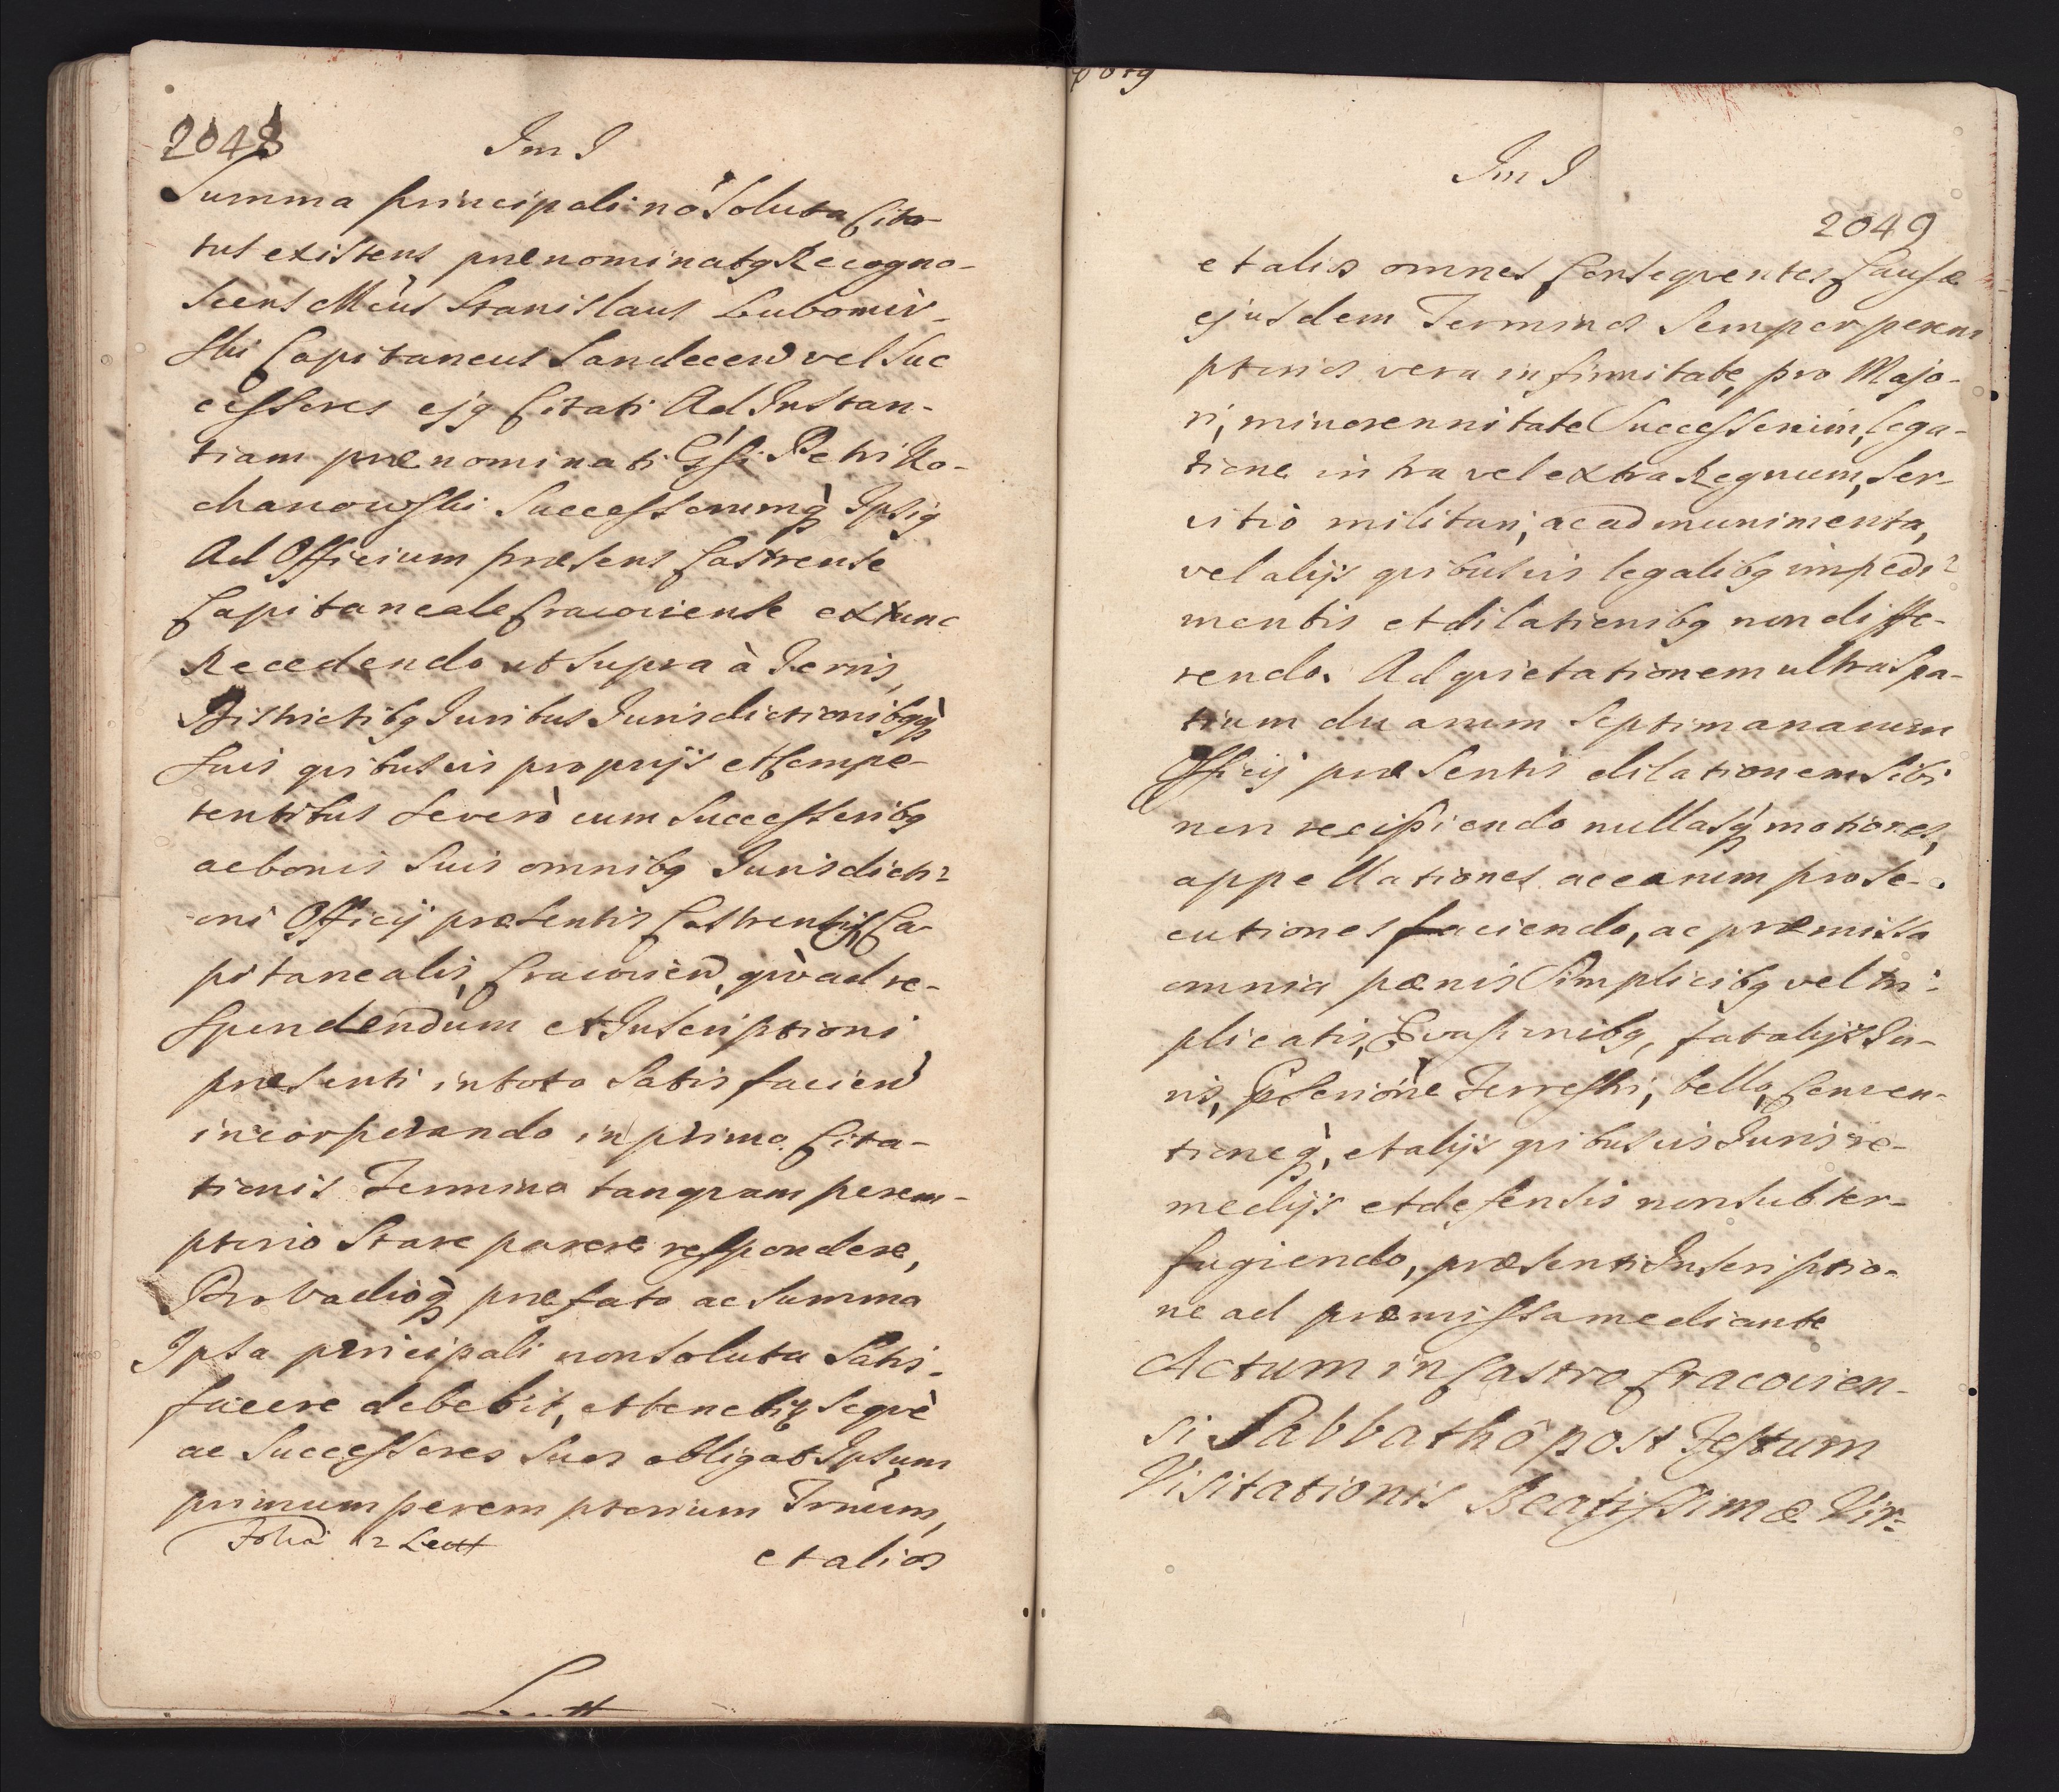 2048
Im I
Summa principali nō Soluta Cita-
tus existens prænominatq Recogno-
scens Mcus Stanislaus Lubomir-
ski Capitaneus Sandecen vel Suc
cessores ejq Citati Ad Instan-
tiam prænominati Gsi Petri Ko-
chanowski Successorumq Ipsiq
Ad Officium præsens Castrense
Capitaneale Cracoviense extunc
Recedendo ut supra à Terris,
Districtibq Iuribus Iurisdictionibqq
suis quibusvis proprijs et Compe-
tentibus Severò cum Successoribq
ac bonis Suis omnibq Iurisdicti-
oni Officij præsentis Castrensis Ca-
pitanealis, Cracovien, quò ad re-
spondendum et Inscriptioni
præsenti in toto Satisfacien
incorporando in primo Cita-
tionis Termino tanquam perem-
ptorio Stare parere respondere,
Pro Vadioq præfato ac Summa
Ipsa principali non Soluta Satis-
facere debebit, et tenebit Seque
ac Successores Suos obligat Ipsum
primum peremptorium Trnum,
et alios
2049
Im I
2049
et alios omnes Consequentes Causæ
ejusdem Terminos Semper perem
ptorios vera infirmitate, pro Majo-
ri, minorennitate Successorum, lega-
tione intra vel extra Regnum, Ser-
vitio militari, ac ad munimenta,
vel alijs quibusvis legalibq impedi-
mentis et dilationibq non diffe-
rendo. Ad quietationem ultra Spa-
tium duarum Septimanarum
Officij præsentis dilationem Sibi
non recipiendo nullasq motiones,
appellationes ac earum prose-
cutiones faciendo, ac præmissa
omnia pænis Simplicibq vel tri-
plicatis, Evasionibq, fatalijs Iu-
ris, Terrestri, bello, Conven-
tioneq, et alijs quibusvis Iuris re-
medijs et defensis non subter-
fugiendo, præsenti Inscriptio-
ne ad præmissa mediante
Actum in Castro Cracovien-
si Sabbathô post Festum
Visitationis Beatissimæ Vir-